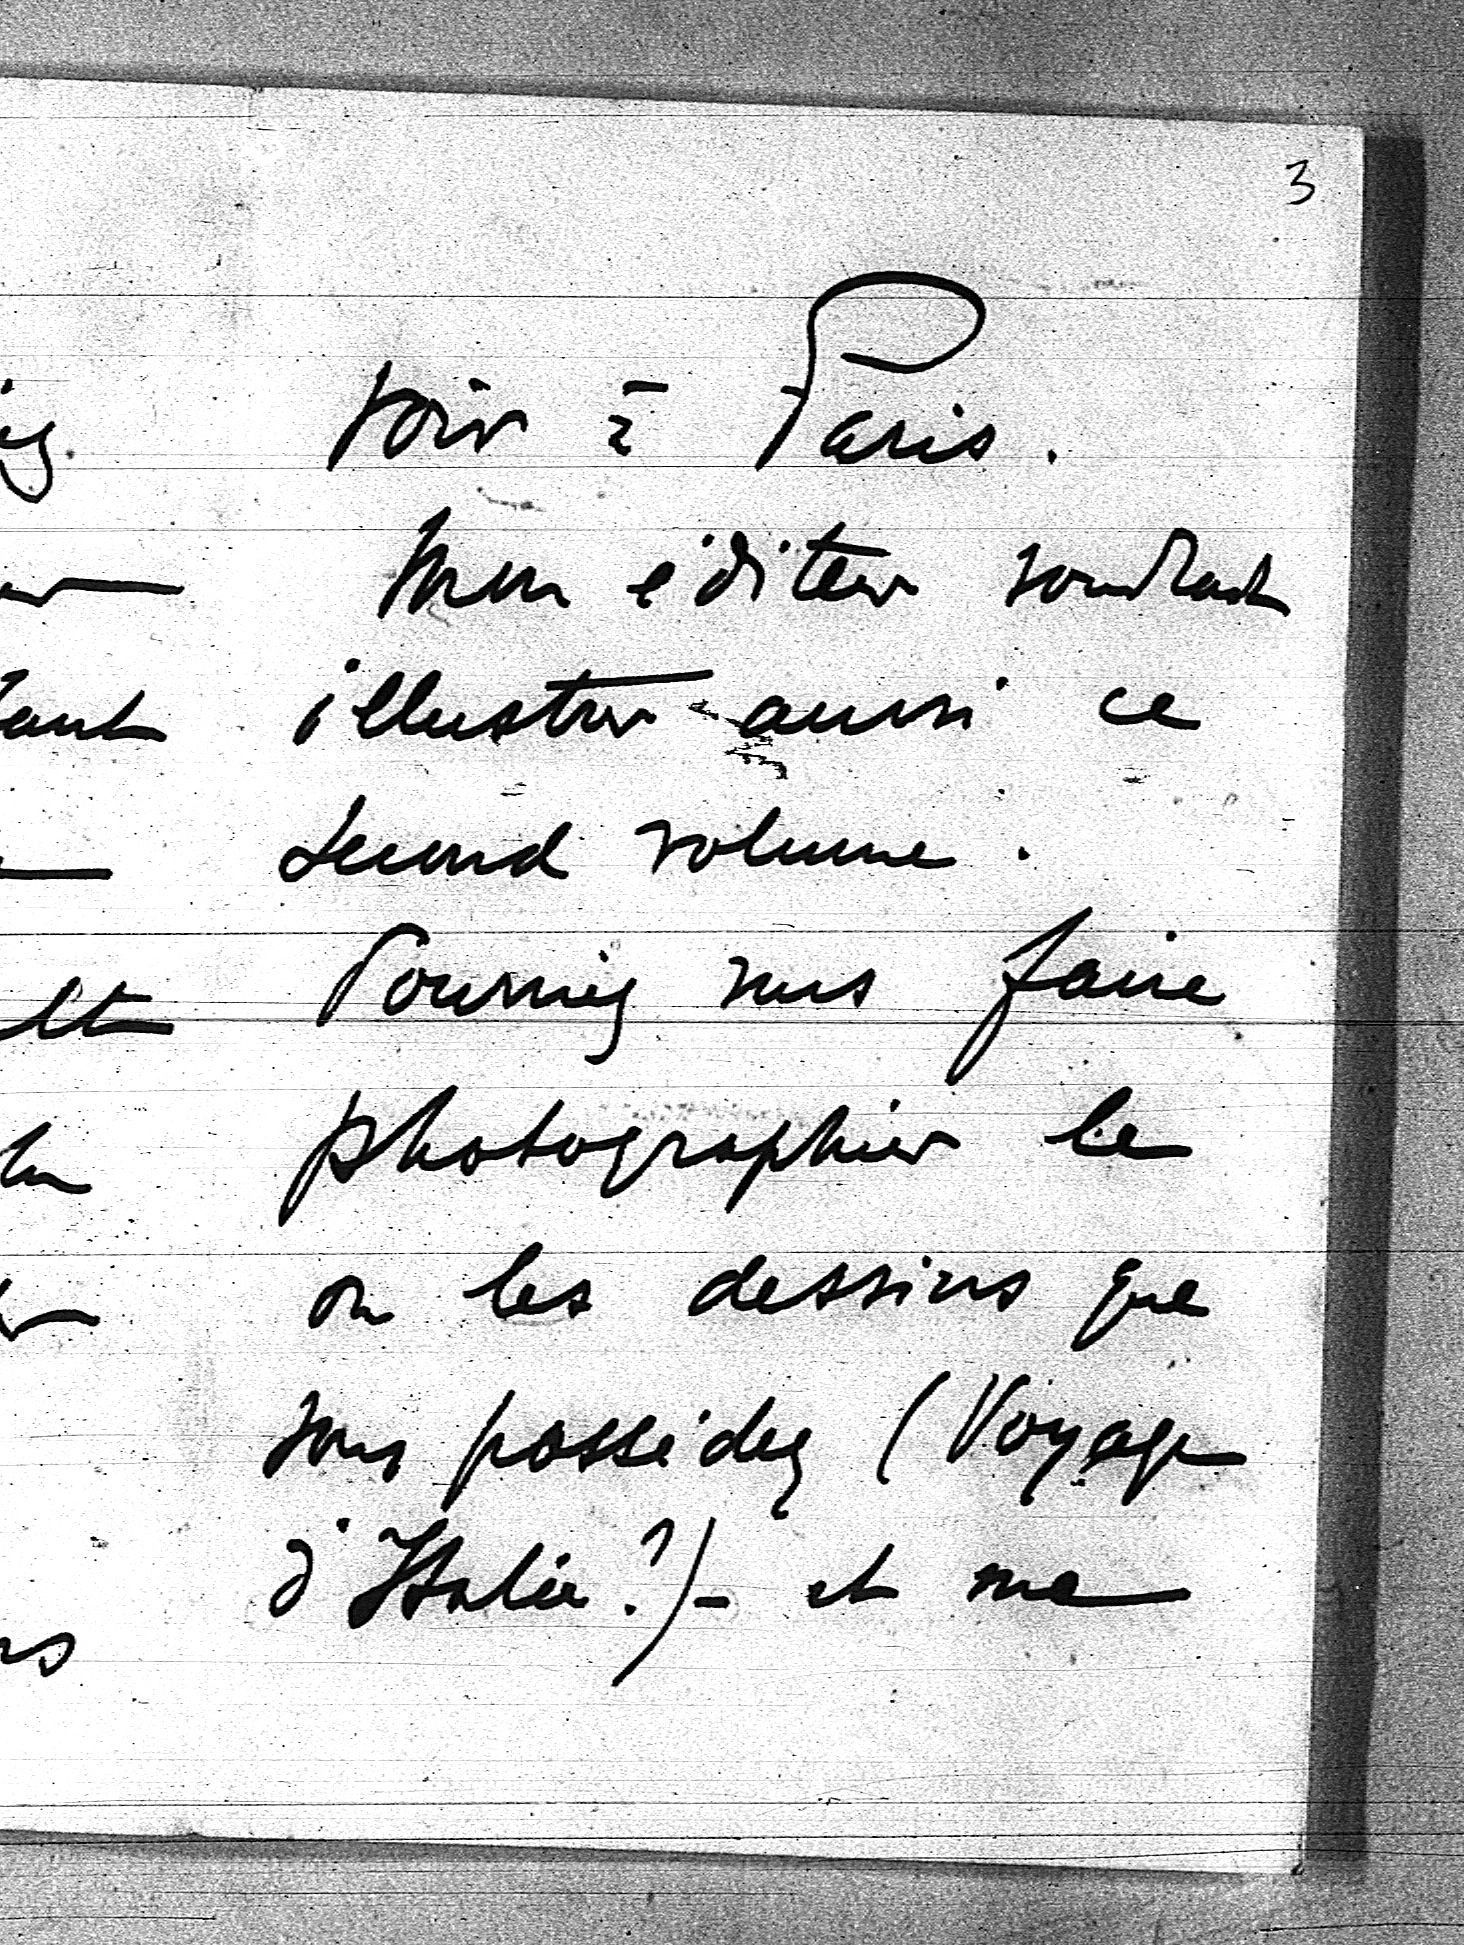 3
voir à Paris.
Mon éditeur voudrait
illustrer aussi ce
second volume.
Pourriez vous faire
photographier le
ou les dessins que
vous possédez (Voyage
d'Italie?) - et me